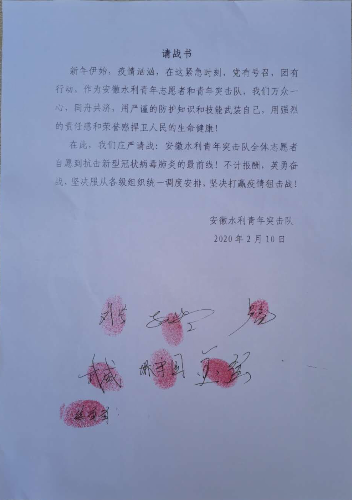 请战书
新年伊始，疫情汹涌，在这紧急时刻，党有号召，团有
行动。作为安徽水利青年志愿者和青年突击队，我们万众一
心，同舟共济，用严谨的防护知识和技能武装自己，用强烈
的责任感和荣誉感捍卫人民的生命健康！
在此，我们庄严请战：安徽水利青年突击队全体志愿者
自愿到抗击新型冠状病毒肺炎的最前线！不计报酬，英勇奋
战，坚决服从各级组织统一调度安排，坚决打赢疫情狙击战！
安徽水利青年突击队
2020 年 2 月 10 日